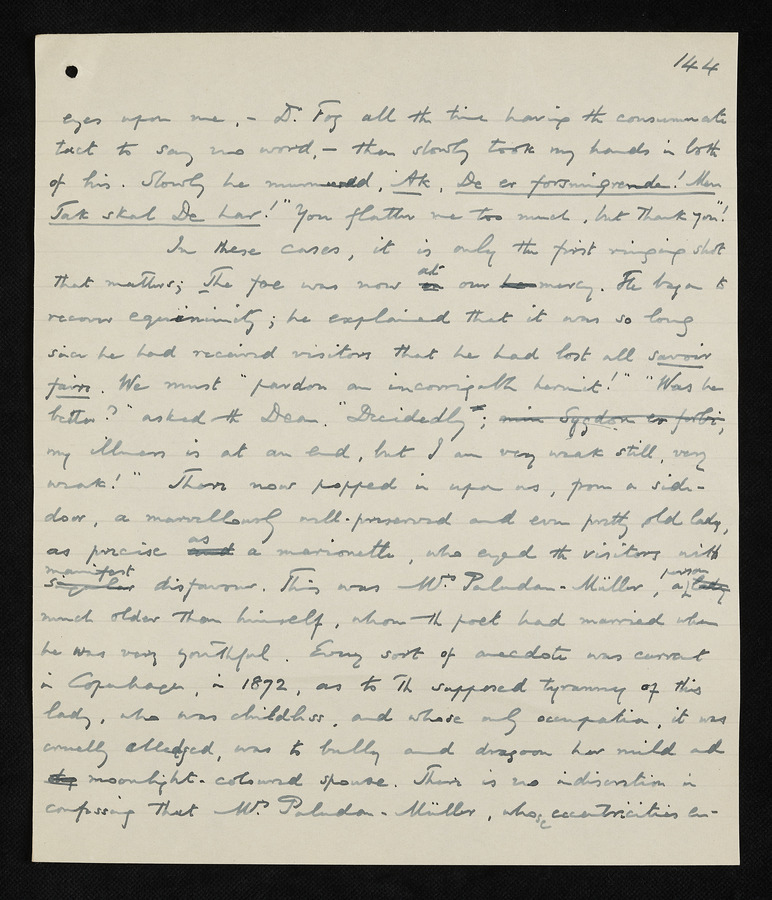 144
eyes upon me, – D. Fog all the time having the consummate
tact to say no word, – then slowly took my hands in both
of his. Slowly he murmured, "Ak, De er forsmigrende! Men
Tak skal De har!" "You flatter me too much, but Thank you"!
In these cases, it is only the first ringing shot
that matters; The foe was now at our mercy. He began to
recover equinimity; he explained that it was so long
since he had received visitors that he had lost all savoir
faire. We must "pardon an incorrigible hermit!" "Was he
better?" asked the Dean. "Decidedly"; min Sygdom er forbi,
my illness is at an end, but I am very weak still, very
weak!" There now popped in upon us, from a side-
door, a marvellously well-preserved and even pretty old lady,
as precise as a marionette, who eyed the visitors with
manifest
singular disfavour. This was Mrs Paludan-Müller, a person lady
much older than himself, whom the poet had married when
he was very youthful. Every sort of anecdote was current
in Copenhagen, in 1872, as to the supposed tyranny of this
lady, who was childless, and whose only occupation, it was
cruelly alledged, was to bully and dragoon her mild and
moonlight-coloured spouse. There is no indiscretion in
confessing that Mrs Paludan-Müller, whose eccentricities en-